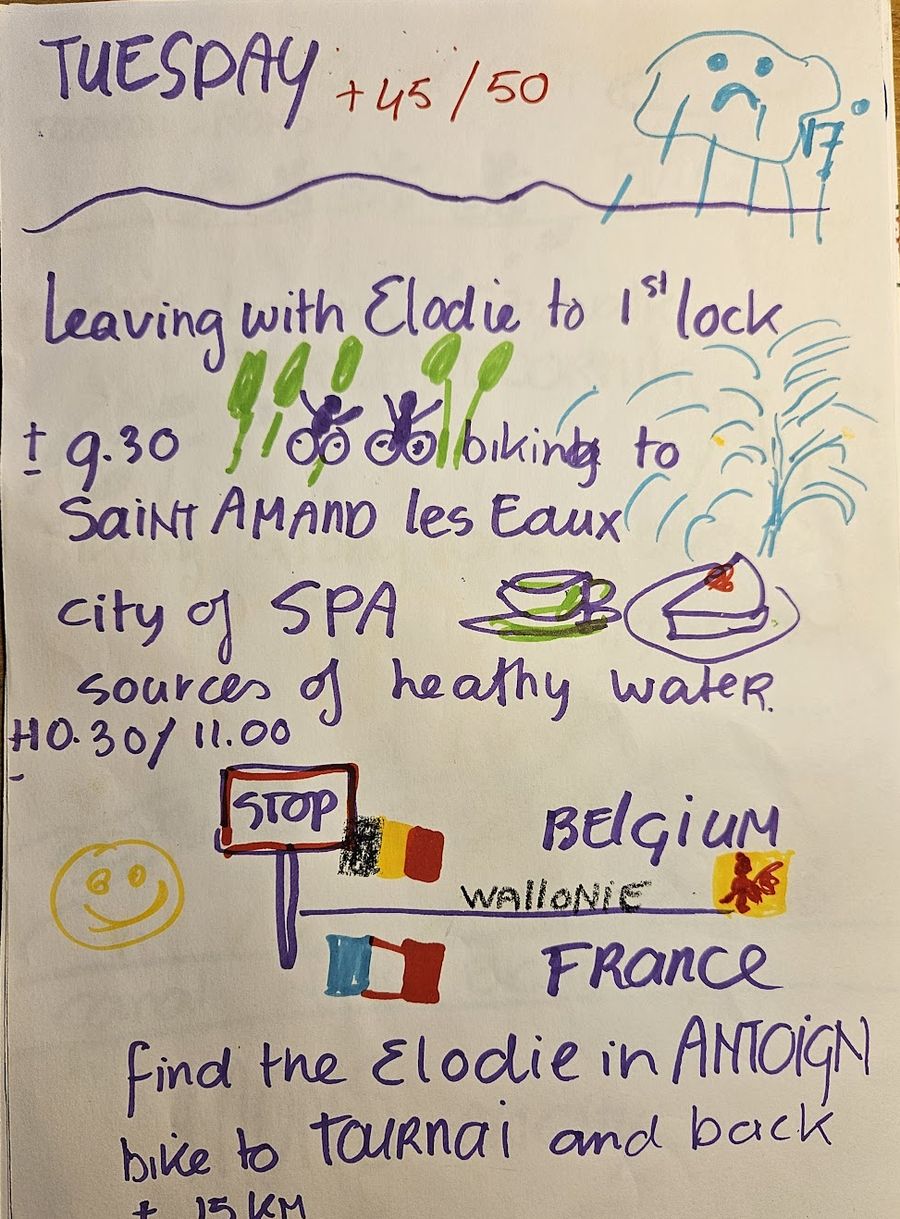 TUESDAY +45/50
17°
Leaving with Elodie to 1st lock
± 9.30 biking to
SaiNT AMAND les Eaux
city of SPA
sources of heathy water.
±10.30/11.00
STOP
BElgiUM
WAllONiE
FRance
find the Elodie in ANTOiGN
bike to TOURNai and back
± 15 KM